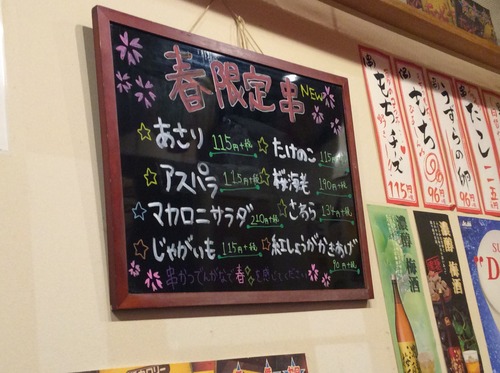 春限定串 NEW
あさり 115円+税
たけのこ 115円+税
アスパラ 115円+税
桜海老 190円+税
マカロニサラダ 210円+税
じゃがいも 115円+税
紅しょうがかきあげ 96円+税
串かつでんがなで春を感じてください
もちチーズ 115円
もち 96円
うずらの卵 96円
たこ 一二五円
濃醇 梅酒
濃醇 梅酒
Asahi